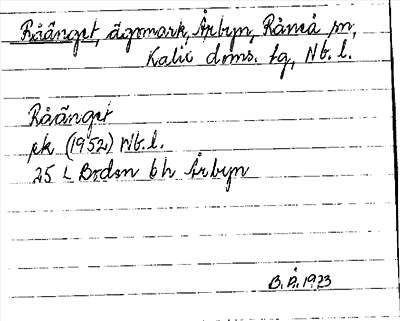 Rååänget, ägomark, Årbyn, Råneå sn,
Kalix doms. tg, Nb. l.
Rååänget
ek (1952) Nb. l.
25 L Boden bh Årbyn
B. Å. 1923